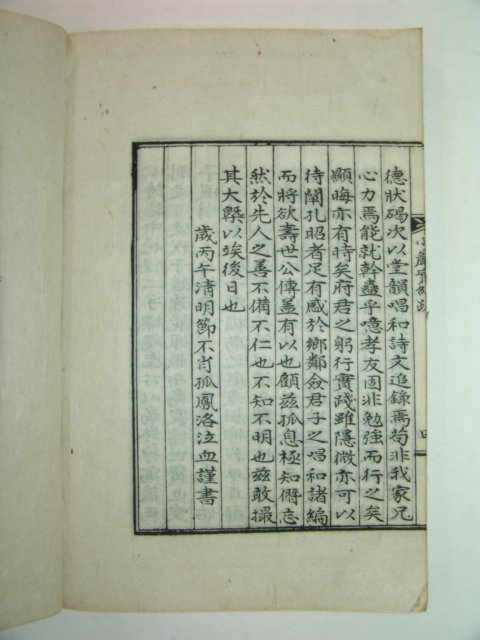 德狀碣次以堂韻唱和詩文追錄焉苟非我家兄
心力焉能就幹蠱乎噫孝友固非勉強而行之矣
顯晦亦有時矣府君之躬行實踐雖隱微亦可以
待闡孔昭者足有感於鄉鄰僉君子之唱和諸編
而將欲壽世公傳盖有以也顧玆孤息極知僭忘
然於先人之善不備不仁也不知不明也玆敢撮
其大槩以竢後日也
歲丙午淸明節不肖孤鳳洛泣血謹書